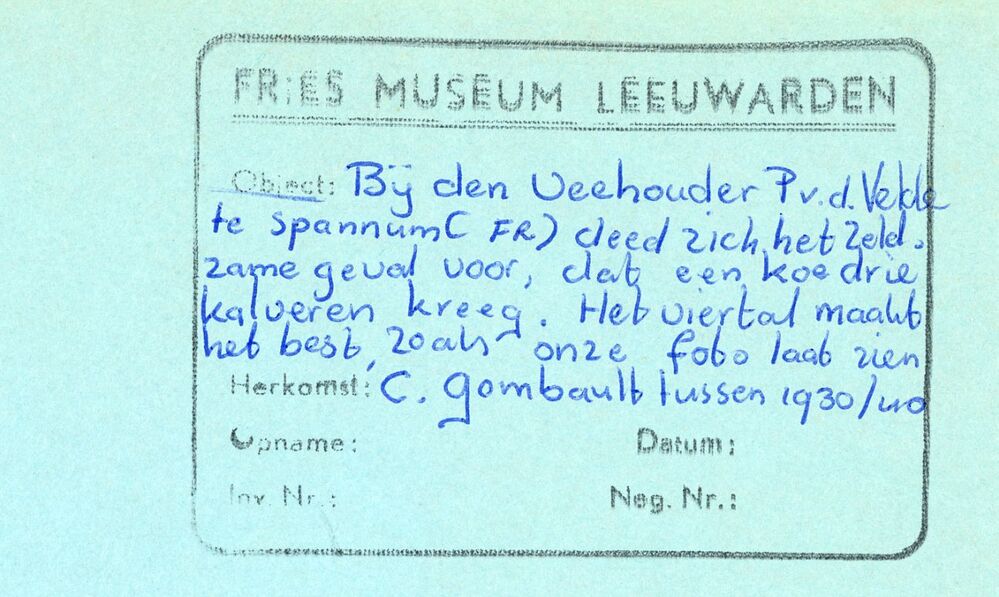 FRIES MUSEUM LEEUWARDEN
Object: Bij den Veehouder P v.d. Velde
te Spannum (FR) deed zich het Zeld-
zame geval voor, dat een koe drie
kalveren kreeg. Het viertal maakt
het best, zoals onze foto laat zien
Herkomst: C. Gombault tussen 1930/40
Opname: Datum:
Inv. Nr.: Neg. Nr.: